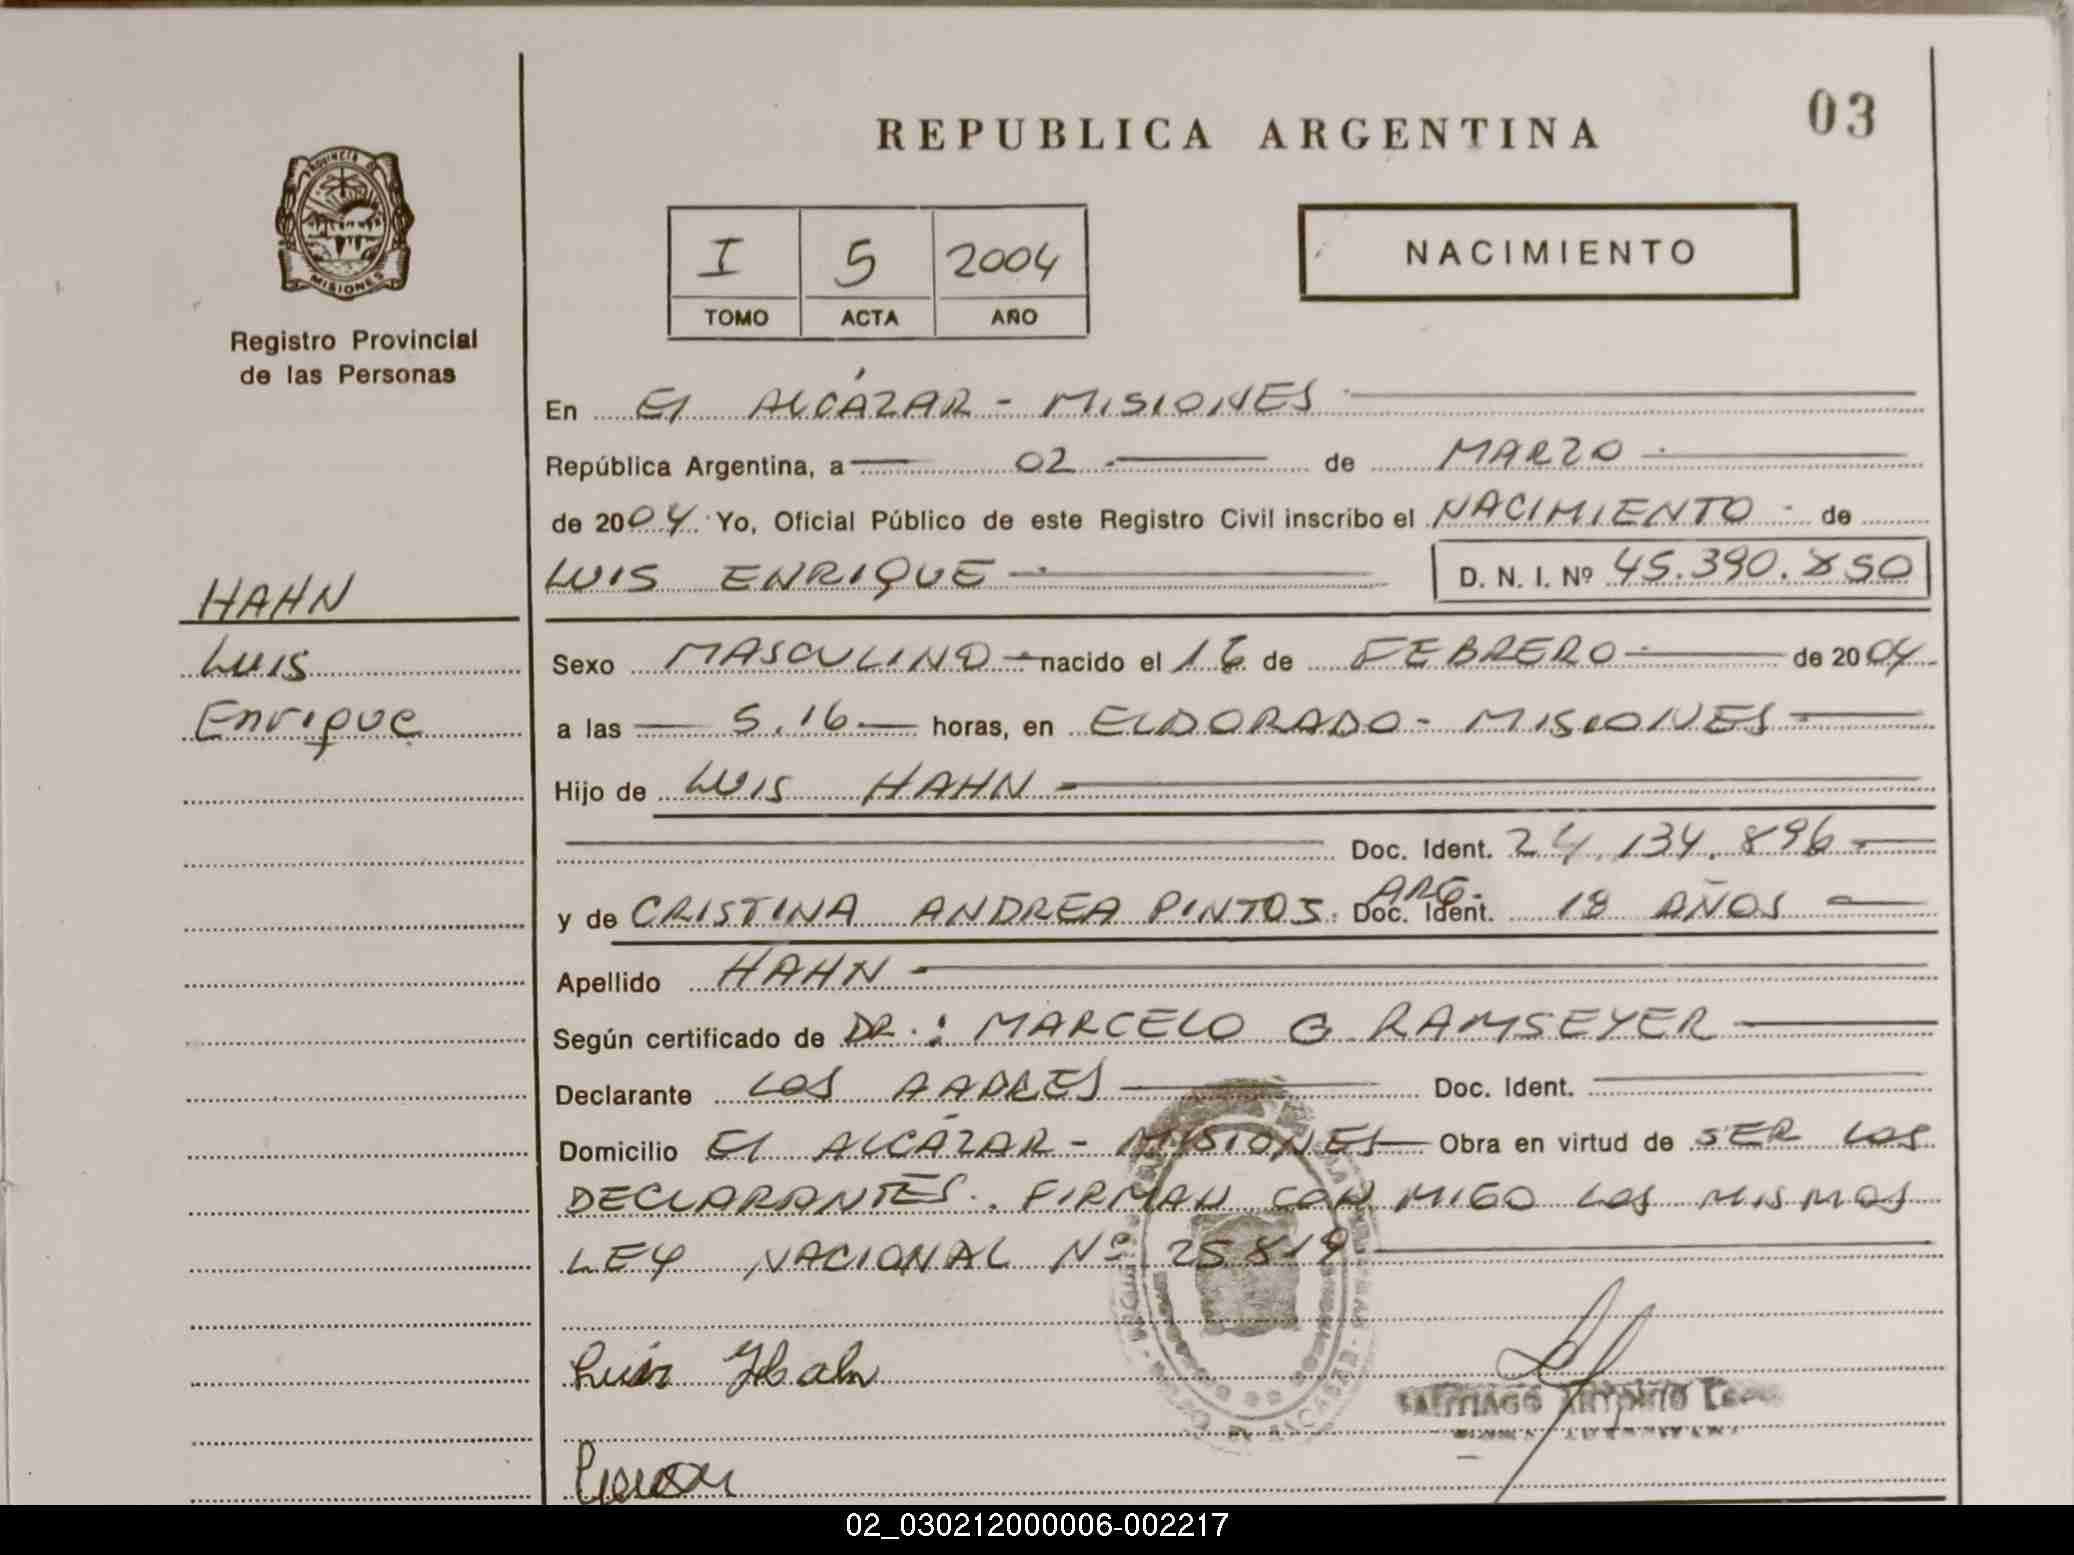 REPUBLICA ARGENTINA
03
PROVINCIA DE
MISIONES
Registro Provincial
de las Personas
I 5 2004
TOMO ACTA AÑO
NACIMIENTO
En El ALCÁZAR - MISIONES
República Argentina, a 02 de MARZO
de 2004 Yo, Oficial Público de este Registro Civil inscribo el NACIMIENTO de
LUIS ENRIQUE D. N. I. Nº 45.390.850
HAHN
Luis
Enrique
Sexo MASCULINO nacido el 16 de FEBRERO de 2004
a las 5.16 horas, en ELDORADO - MISIONES
Hijo de LUIS HAHN
Doc. Ident. 24.134.896
y de CRISTINA ANDREA PINTOS. ARG. Doc. Ident. 18 AÑOS
Apellido HAHN
Según certificado de DR.: MARCELO G RAMSEYER
Declarante LOS PADRES Doc. Ident.
Domicilio El ALCÁZAR - MISIONES Obra en virtud de SER LOS
DECLARANTES. FIRMAN CON MIGO LOS MISMOS
LEY NACIONAL Nº 25819
Luis Hahn
SANTIAGO ANTONIO
02_030212000006-002217